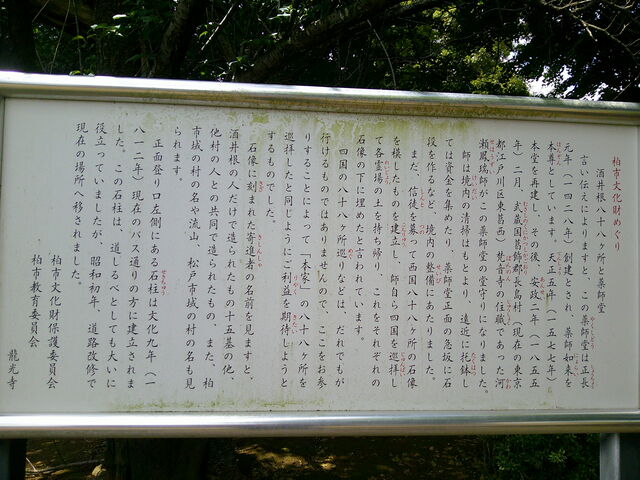 柏市文化財めぐり
酒井根八十八ヶ所と薬師堂
言い伝えによりますと、この薬師堂は正長
元年（一四二八年）創建とされ、薬師如来を
本尊としています。天正五年（一五七七年）に
本堂を再建し、その後、安政二年（一八五五
年）二月、武蔵国葛飾郡長島村（現在の東京
都江戸川区東葛西）梵音寺の住職であった河
瀬鳳瑞師がこの薬師堂の堂守りになりました。
師は境内の清掃はもとより、遠近に托鉢し
ては資金を集めたり、薬師堂正面の急坂に石
段を作るなど、境内の整備にあたりました。
また、信徒を募って西国八十八ヶ所の石像
を模したものを建立し、師自ら四国を巡拝し
て各霊場の土を持ち帰り、これをそれぞれの
石像の下に埋めたと言われています。
四国の八十八ヶ所巡りなどは、だれでもが
行けるものではありませんので、ここをお参
りすることによって「本家」の八十八ヶ所を
巡拝したと同じようにご利益を期待しようと
するものでした。
石像に刻まれた寄進者の名前を見ますと、
酒井根の人だけで造られたもの十五基の他、
他村の人との共同で造られたもの、また、柏
市域の村の名や流山、松戸市域の村の名も見
られます。
正面登り口左側にある石柱は文化九年（一
八一二年）現在のバス通りの方に建立されま
した。この石柱は、道しるべとしても大いに
役立っていましたが、昭和初年、道路改修で
現在の場所へ移されました。
柏市文化財保護委員会
柏市教育委員会
龍光寺